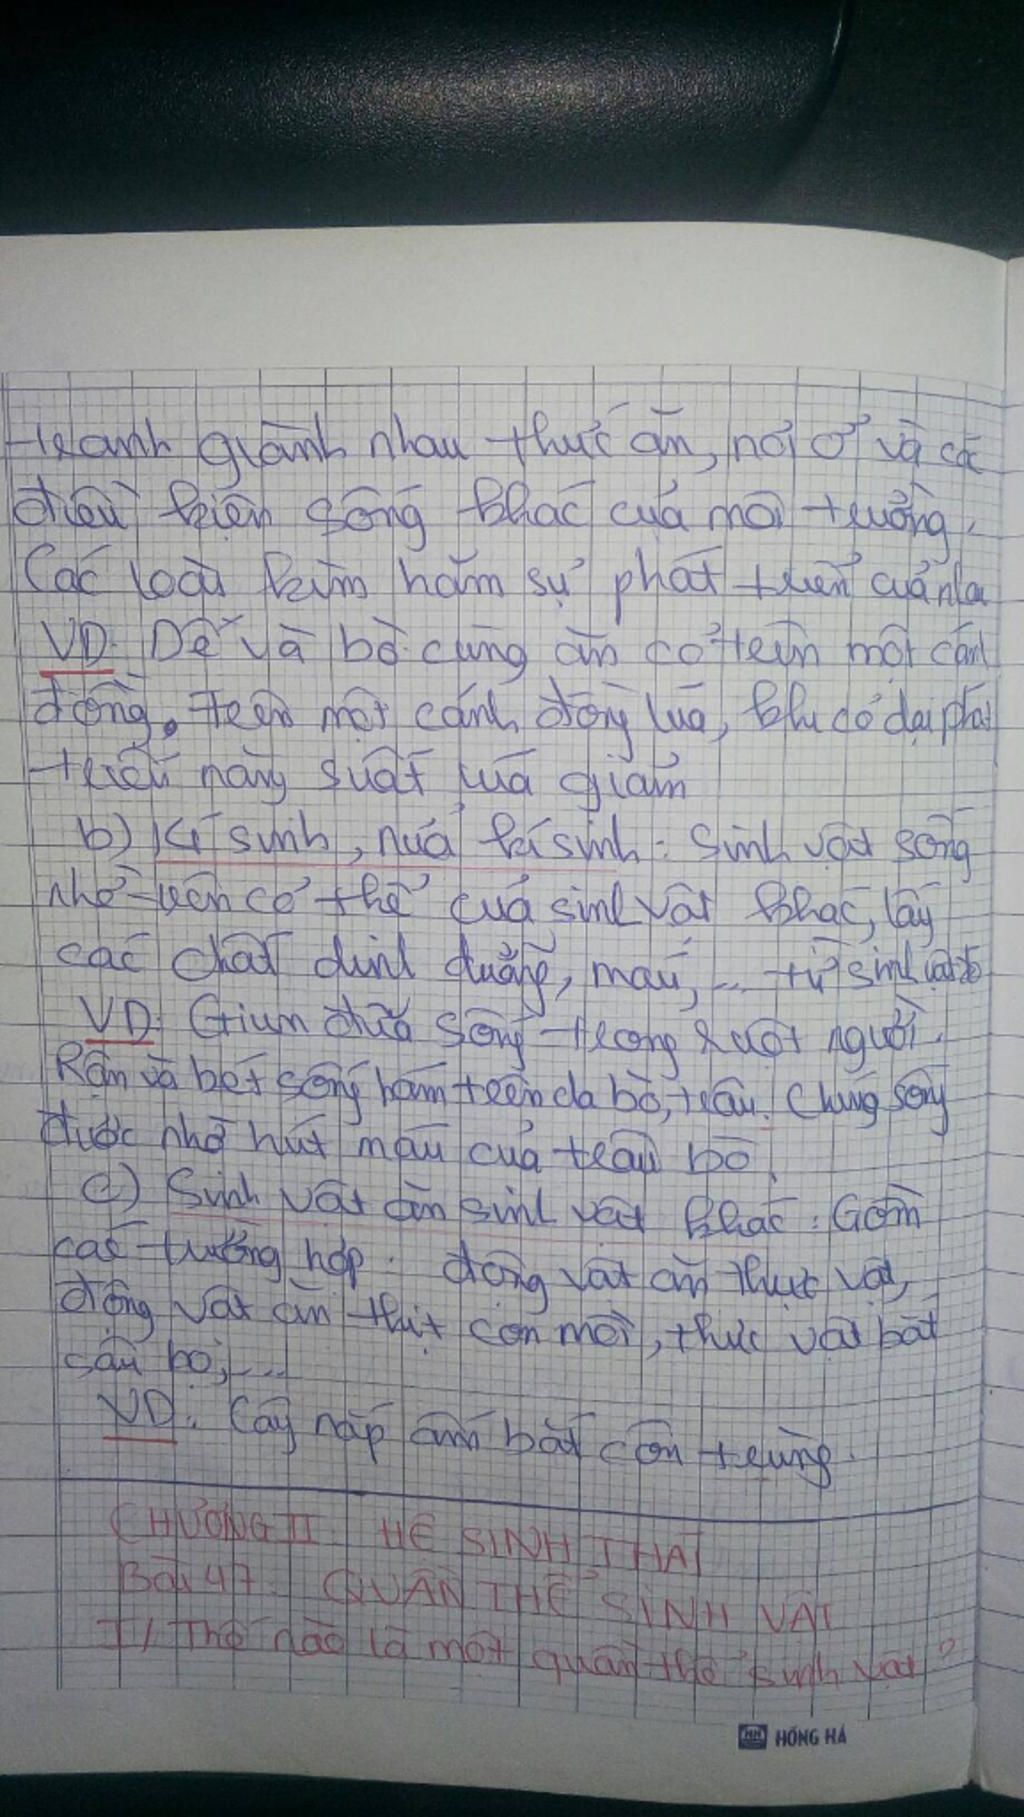 tranh giành nhau thức ăn, nơi ở và các
điều kiện sống khác của môi trường.
Các loài kìm hãm sự phát triển của nhau
VD: Dê và bò cùng ăn cỏ trên một cánh
đồng. Trên một cánh đồng lúa, khi cỏ dại phát
triển năng suất lúa giảm
b) Kí sinh, nửa kí sinh: Sinh vật sống
nhờ trên cơ thể của sinh vật khác, lấy
các chất dinh dưỡng, máu, ... từ sinh vật đó
VD: Giun đũa sống trong ruột người.
Rận và bét sống bám trên da bò, trâu. Chúng sống
được nhờ hút máu của trâu bò.
c) Sinh vật ăn sinh vật khác: Gồm
các trường hợp: động vật ăn thực vật,
động vật ăn thịt con mồi, thực vật bắt
sâu bọ,...
VD: Cây nắp ấm bắt côn trùng.
CHƯƠNG II: HỆ SINH THÁI
Bài 47: QUẦN THỂ SINH VẬT
I/ Thế nào là một quần thể sinh vật?
HH HỒNG HÀ